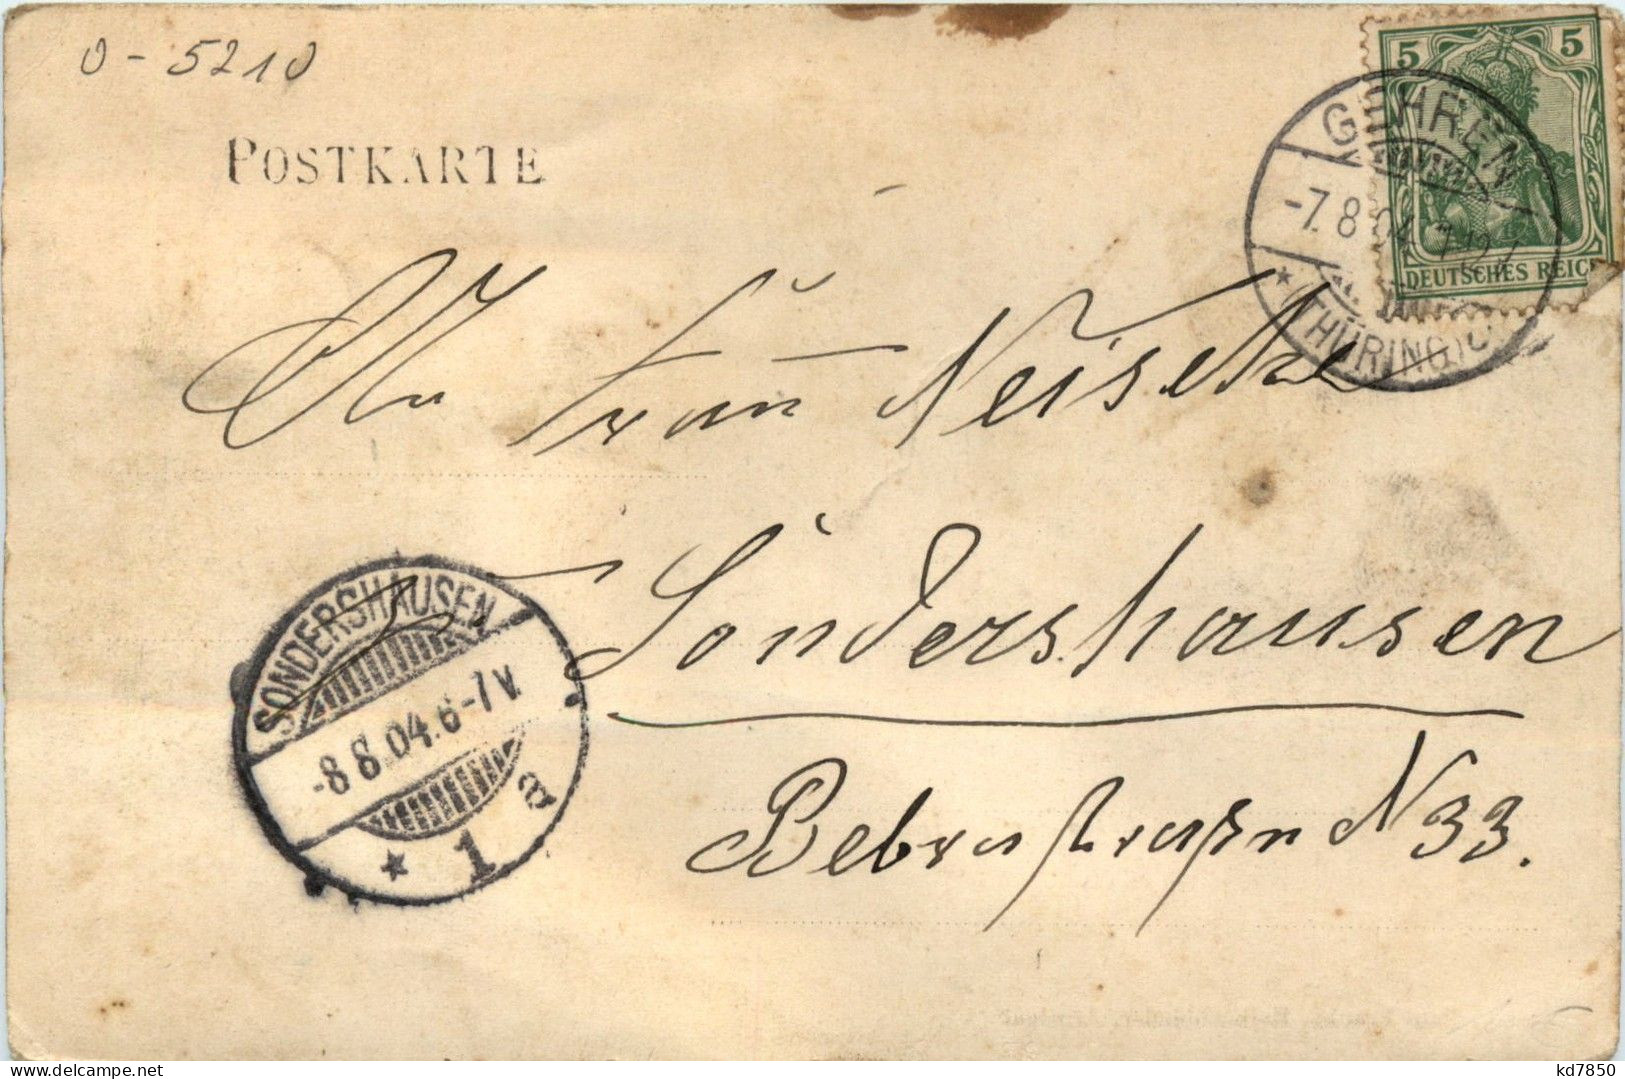 0-5210
5 5
DEUTSCHES REIC
GEHREN
-7.8.04
* THÜRING
POSTKARTE
An Frau
Sondershausen
Bebrastraße N 33.
SONDERSHAUSEN
-8.8.04.6-7V.
* 1 a
kd7850